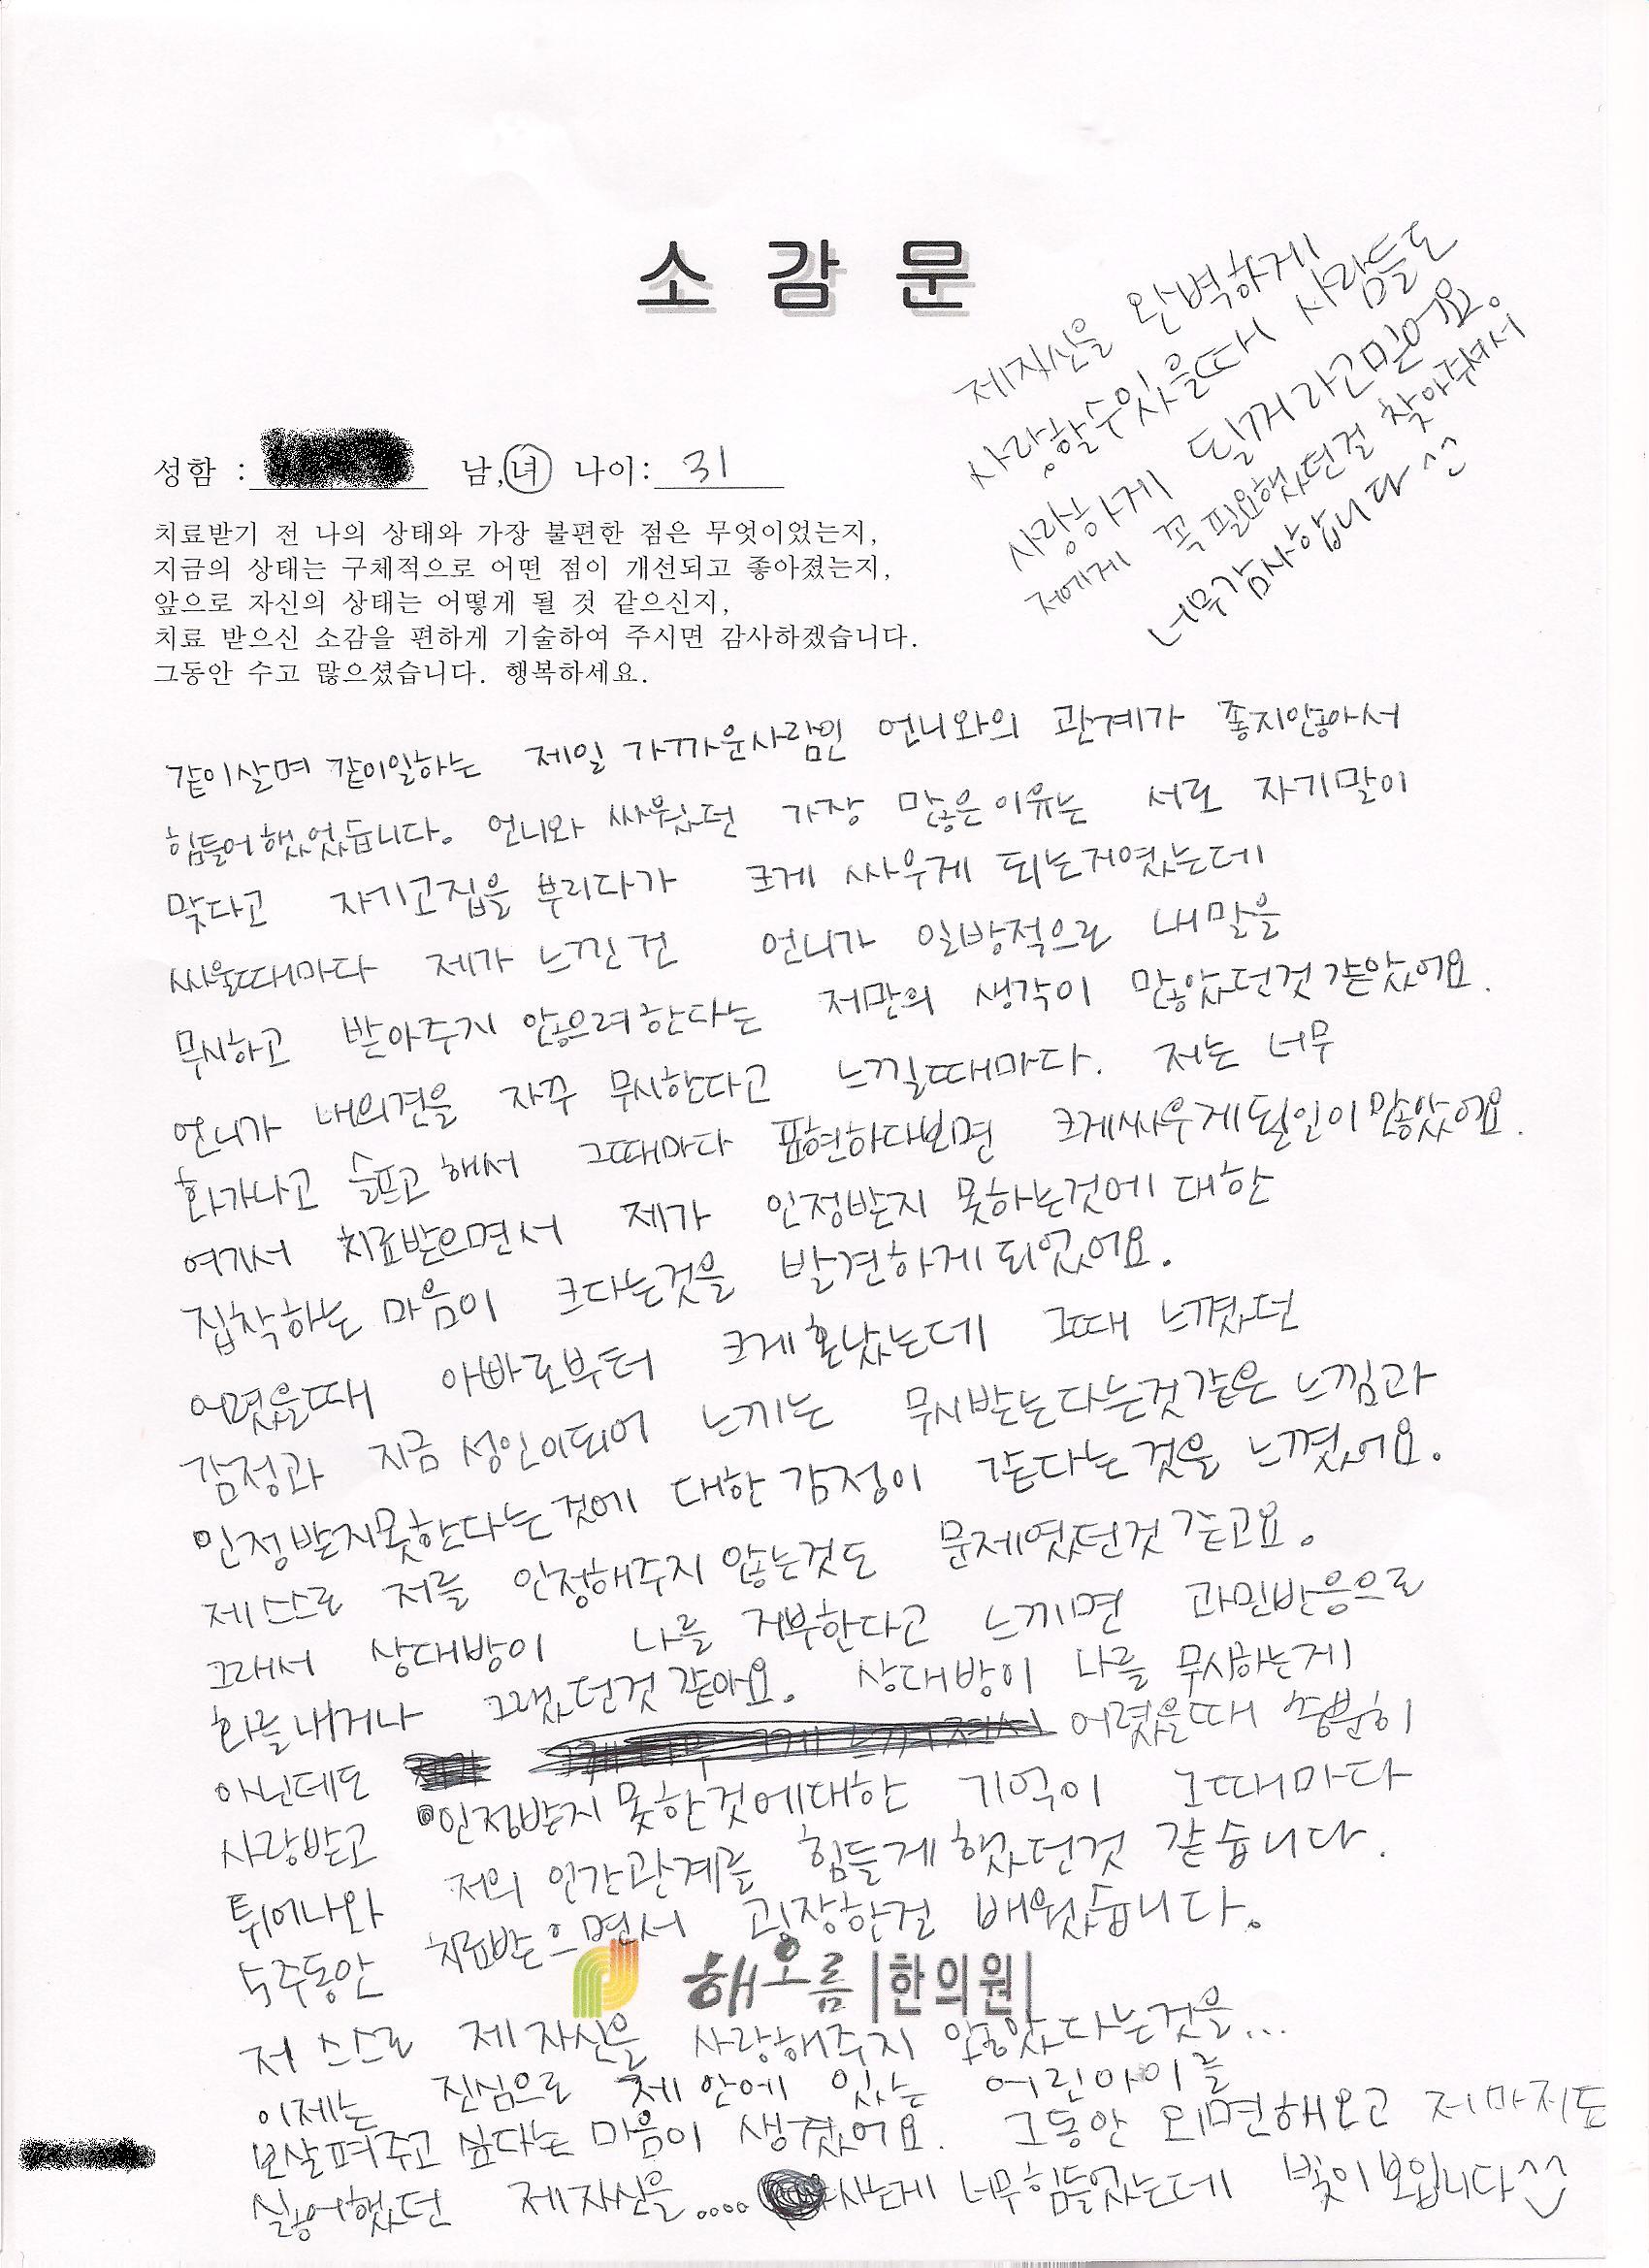 소 감 문
성함 : 남,녀 나이: 31
치료받기 전 나의 상태와 가장 불편한 점은 무엇이었는지,
지금의 상태는 구체적으로 어떤 점이 개선되고 좋아졌는지,
앞으로 자신의 상태는 어떻게 될 것 같으신지,
치료 받으신 소감을 편하게 기술하여 주시면 감사하겠습니다.
그동안 수고 많으셨습니다. 행복하세요.
같이살며 같이일하는 제일 가까운사람인 언니와의 관계가 좋지않아서
힘들어했었습니다. 언니와 싸웠던 가장 많은이유는 서로 자기말이
맞다고 자기고집을 부리다가 크게 싸우게 되는거였는데
싸울때마다 제가 느낀건 언니가 일방적으로 내말을
무시하고 받아주지 않으려한다는 저만의 생각이 많았던것같았어요.
언니가 내의견을 자꾸 무시한다고 느낄때마다. 저는 너무
화가나고 슬프고해서 그때마다 표현하다보면 크게싸우게될일이많았어요.
여기서 치료받으면서 제가 인정받지 못하는것에 대한
집착하는 마음이 크다는것을 발견하게되었어요.
어렸을때 아빠로부터 크게혼났는데 그때 느꼈던
감정과 지금 성인이되어 느끼는 무시받는다는것같은 느낌과
인정받지못한다는것에 대한감정이 같다는것을 느꼈어요.
제스스로 저를 인정해주지 않는것도 문제였던것같고요.
그래서 상대방이 나를 거부한다고 느끼면 과민반응으로
화를내거나 그랬던것같아요. 상대방이 나를 무시하는게
아닌데도 어렸을때 충분히
사랑받고 인정받지못한것에대한 기억이 그때마다
튀어나와 저의 인간관계를 힘들게했던것 같습니다.
5주동안 치료받으면서 굉장한걸 배웠습니다.
해오름|한의원|
저 스스로 제자신을 사랑해주지 않았다는것을...
이제는 진심으로 제안에 있는 어린아이를
보살펴주고 싶다는 마음이 생겼어요. 그동안 외면해오고 저마저도
싫어했던 제자신을.... 사는게 너무힘들었는데 빛이보입니다^^
제자신을 완벽하게
사랑할수있을때 사람들도
사랑하게 될꺼라고믿어요.
저에게 꼭필요했던걸 찾아주셔서
너무감사합니다^^